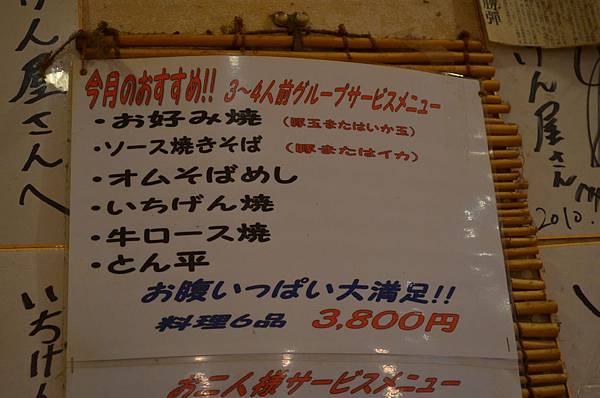 今月のおすすめ!! 3〜4人前グループサービスメニュー
・お好み焼 (豚玉またはいか玉)
・ソース焼きそば (豚またはイカ)
・オムそばめし
・いちげん焼
・牛ロース焼
・とん平
お腹いっぱい大満足!!
料理6品 3,800円
お二人様サービスメニュー
げん屋さんへ
いちげん
げん屋さん
2010.